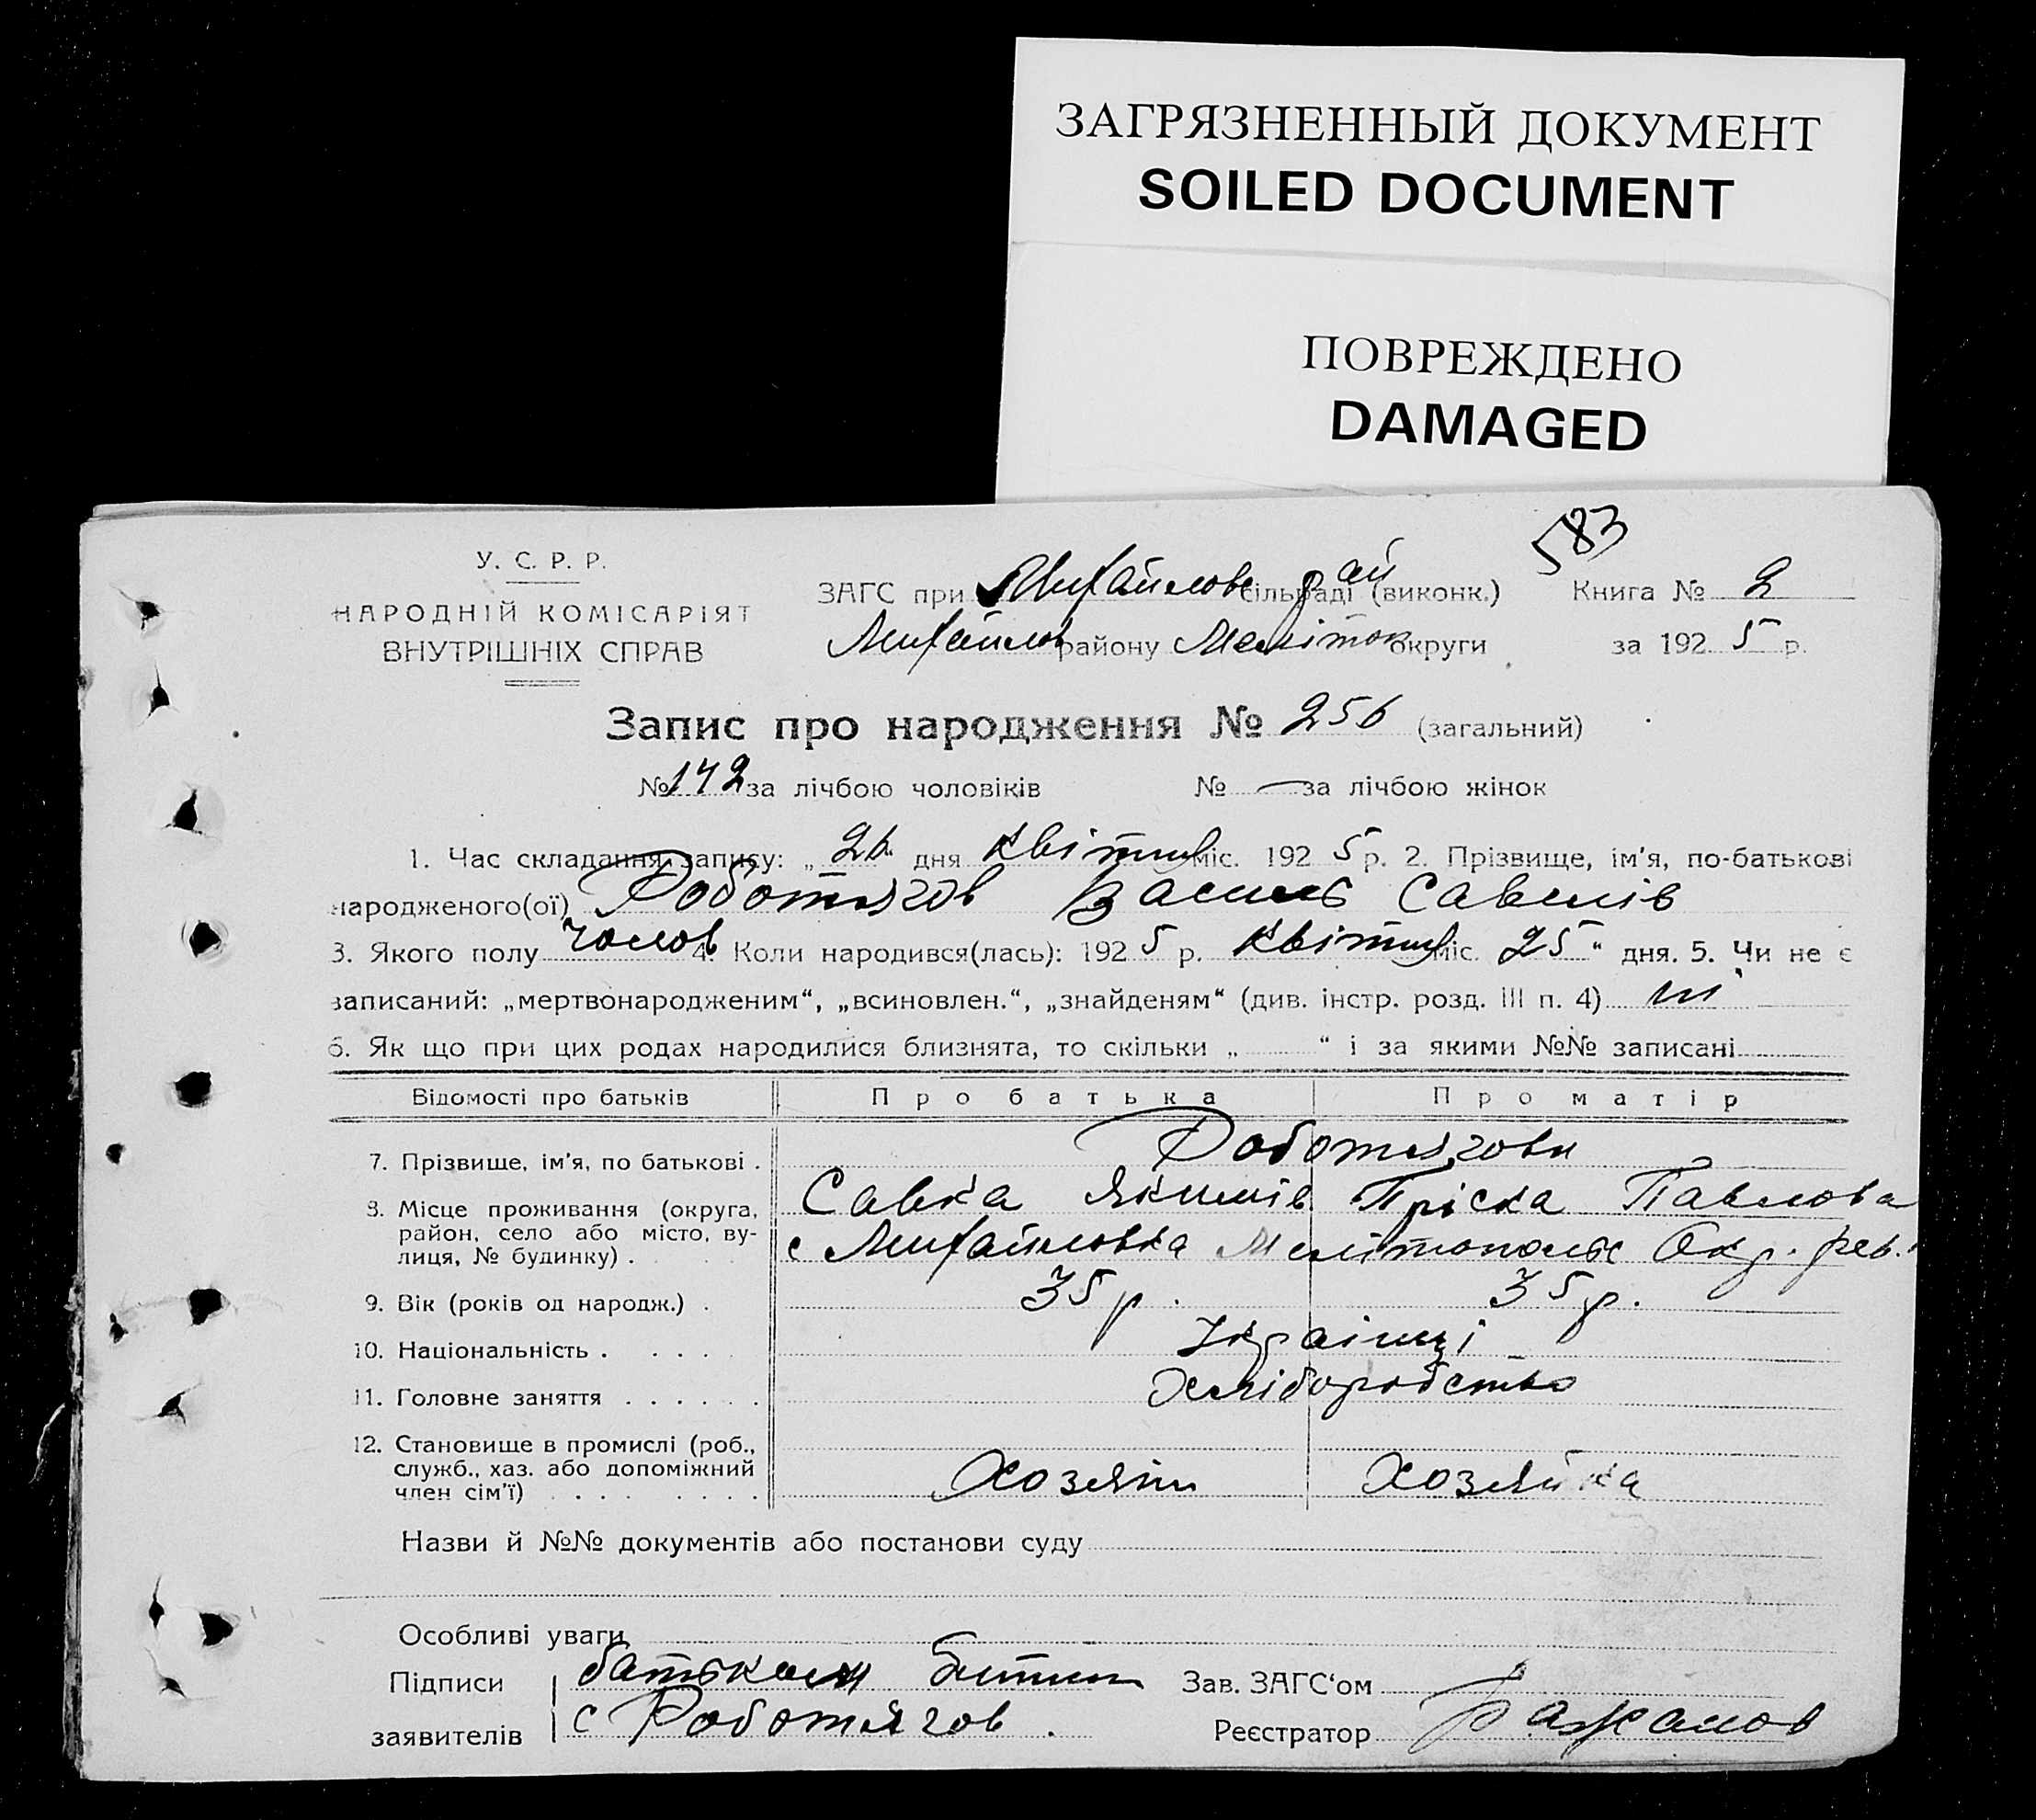 ЗАГРЯЗНЕННЫЙ ДОКУМЕНТ
SOILED DOCUMENT
ПОВРЕЖДЕНО
DAMAGED
583
У. С. Р. Р.
НАРОДНІЙ КОМІСАРІЯТ
ВНУТРІШНІХ СПРАВ
ЗАГС при Михайловс рай сільраді (виконк.) Книга № 2
Михайлов району Меліток округи за 1925 р.
Запис про народження № 256 (загальний)
№ 142 за лічбою чоловіків № — за лічбою жінок
1. Час складання запису: „26“ дня квітня міс. 1925 р. 2. Прізвище, ім'я, по-батькові
народженого(ої) Роботягов Василь Савелів
3. Якого полу чолов 4. Коли народився(лась): 1925 р. квітня міс. 25“ дня. 5. Чи не є
записаний: „мертвонародженим“, „всиновлен.“, „знайденям“ (див. інстр. розд. III п. 4) ні
6. Як що при цих родах народилися близнята, то скільки „ “ і за якими №№ записані
Відомості про батьків Про батька Про матір
7. Прізвище, ім'я, по батькові . Роботягови
8. Місце проживання (округа, Савка Якимів Пріска Павлова
район, село або місто, ву-
лиця, № будинку) . с Михайловка Мелітопольс Окр.
9. Вік (років од народж.) . 35 р. 35 р.
10. Національність . Українці
11. Головне заняття Хліборобство
12. Становище в промислі (роб.,
служб., хаз. або допоміжний
член сім'ї) Хозяїн Хозяйка
Назви й №№ документів або постанови суду
Особливі уваги
Підписи батьком Зав. ЗАГС'ом
заявителів с Роботягов . Реєстратор Бажанов